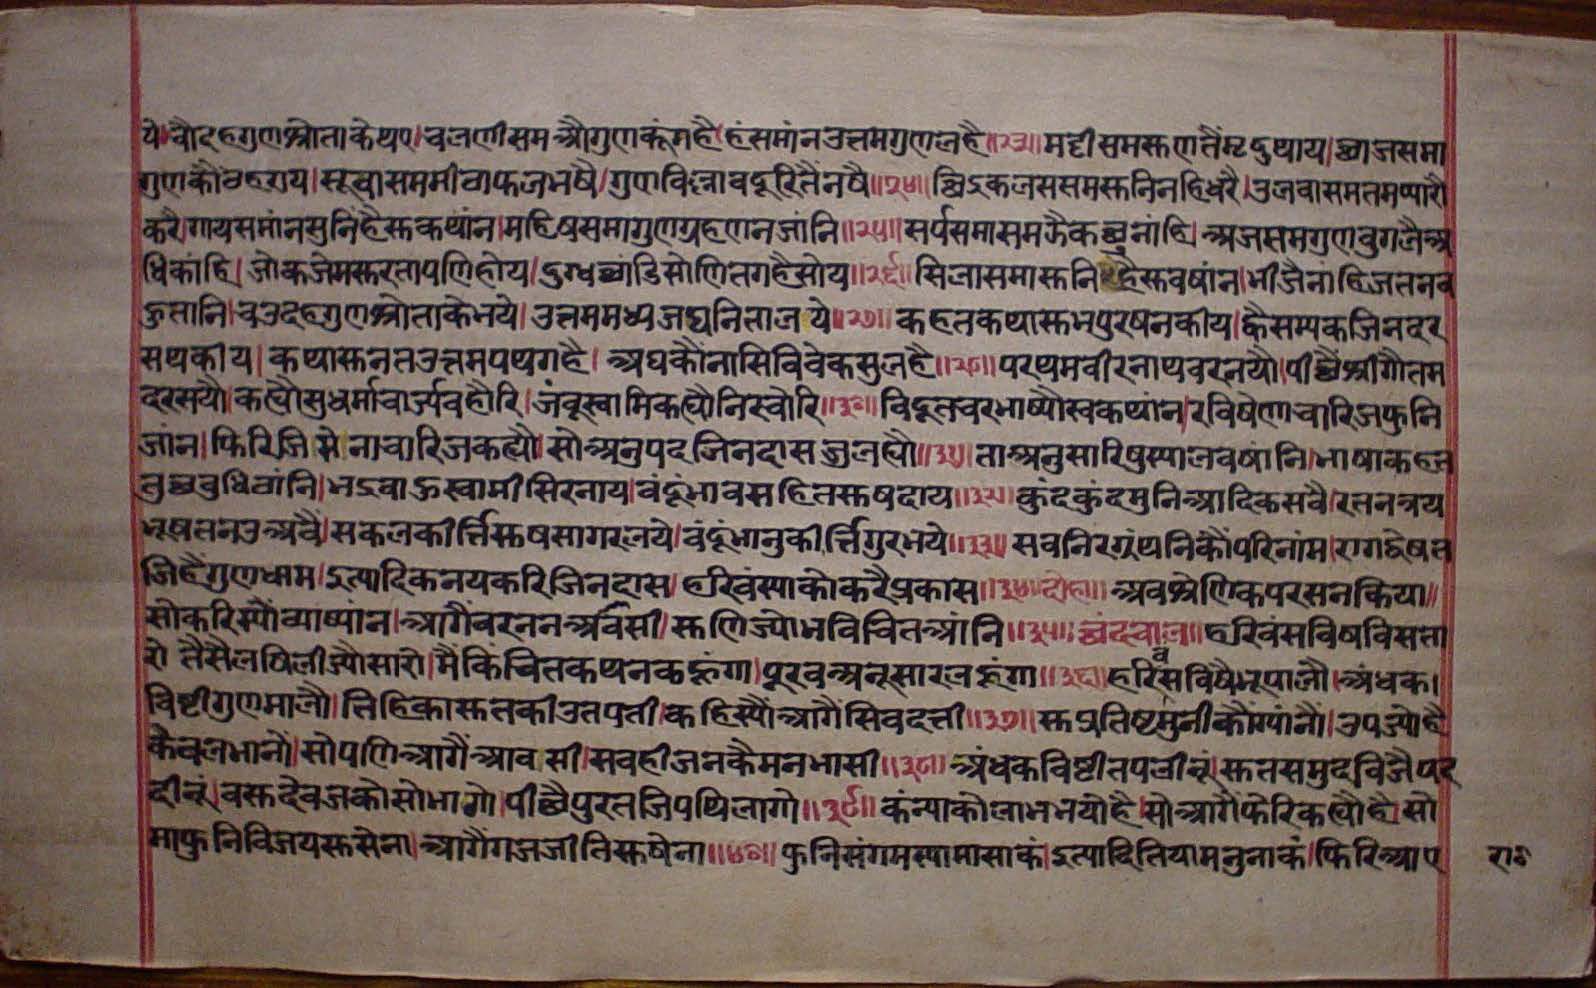 ये।चौदहगुणश्रोताकेथए।चलणीसमऔगुणकूंगहै।हंसमांनउत्तमगुणलहै॥२३॥मट्टीसमसुणतैंमृदुथाय।छाजसमा
गुणकौंवहराय।सूवासममीठाफलभषै।गुणविज्ञावदूरितैंनषै॥२४॥छिद्रकलससमसुनिनहिधरै।उलवासमतमप्यारौ
करै।गायसमांनसुनिंहैसुकथांन।महिषसमागुणग्रहणनजांनि॥२५॥सर्पसमासमऊैकछुनांहि।अजसमगुणवुगलैअ
धिकांहि।जोकजेमसुरतापणिहोय।दुग्धछांडिसोणितगहैसोय॥२६॥सिलासमासुनिहैसुवषांन।भीजैनांहिजतनव
ऊतानि।चउदहगुणश्रोताकेभये।उत्तममध्यजघनितालये॥२७॥कहतकथासुभपुरषनकीय।ह्वैसम्यकजिनदर
सथकीय।कथासुनतउत्तमपथगहै।अघकौंनासिविवेकसुलहै॥२८॥परथमवीरनाथवरनयौ।पीछैश्रीगौतम
दरसयौ।कह्यौसुधर्माचार्ज्यवहौरि।जंबूस्वामिकह्यौनिस्चौरि॥३०॥विद्दूतचरभाष्यौस्वकथांन।रविषेणाचारिजफुनि
जांन।फिरिजिसेनाचारिजकह्यौ।सोअनुपदजिनदासजुलह्यौ॥३१॥ताअनुसारिषुस्यालवषांनि।भाषाकहत
तुछबुधिठांनि।भद्रवाऊस्वामीसिरनाय।वंदूंभावसहितसुषदाय॥३२॥कुंदकुंदमुनिआदिकसवै।रतनत्रय
भूषततनउअवै।सकलकीर्त्तिसुषसागरलये।वंदूंभानुकीर्त्तिगुरभये॥३३॥सवनिरग्रंथनिकौंपरिनांम।रागद्वेषन
जिहैंगुणधाम।इत्यादिकनयकरिजिनदास।हरिवंस्याकोकरैप्रकास॥३४॥दोहा॥अवश्रेणिकपरसनकिया॥
सोकरिस्यौंव्याष्यांन।आगैंवरननअर्वसी।सुणिज्योभविचितआंनि॥३५॥छंदचाल॥हरिवंसविषविसता
रो।तैसैलषिलीज्यौसारो।मैंकिंचितकथनकहूंगा।पूरवअनूसारलहूंगा॥३६॥हरिवंसविषैभूपालौ।अंधक।
विष्टीगुणमालौ।तिहिकासुतकीउतपती।कहिस्यौंआगैसिवदत्ती॥३७॥सुप्रतिष्टमुनीकौंग्यांनौं।उपज्योहै
केवलभानौं।सोपणिआगैंआवसी।सवहीजनकैमनभासी॥३८॥अंधकविष्टीतपलीनूं।सुतसमुदविजैपद
दीनूं।वसुदेवजकोसोभागो।पीछैपुरतजिपथिलागो॥३९॥कंन्याकोलाभभयोहै।सोआगैंफेरिकह्यौहै।सो
माफुनिविजयसुसेना।आगैंगजजीतिसुषेना॥४०॥फुनिसंगमस्यामासाकं।इत्यादितियामनुनाकं।फिरिआए
राठ
व